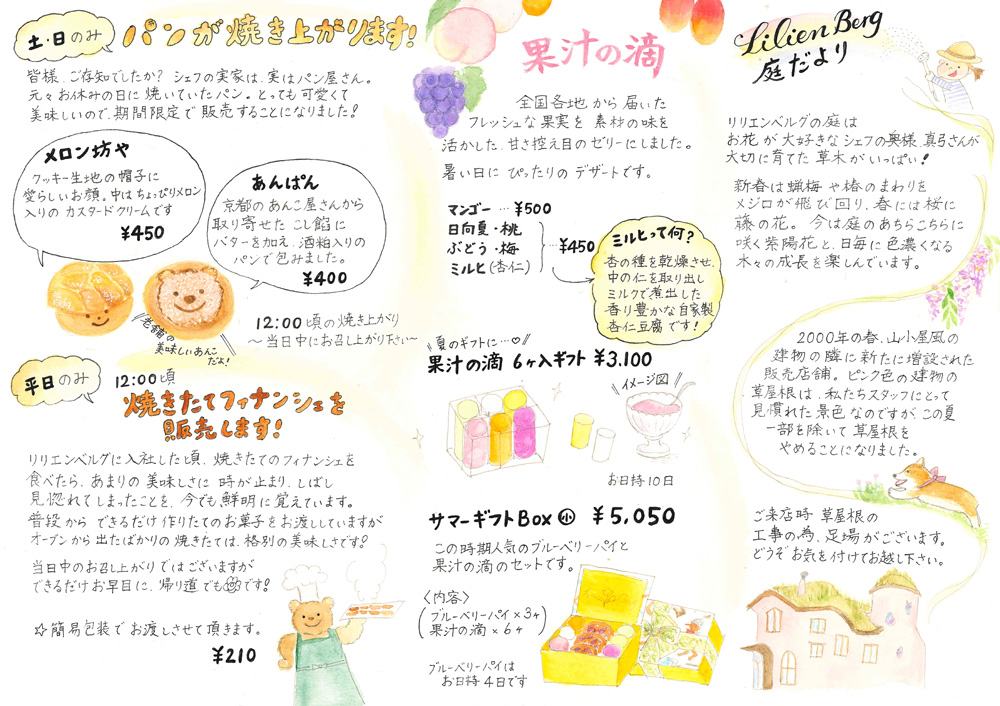 土・日のみ
パンが焼き上がります!
皆様、ご存知でしたか? シェフの実家は、実はパン屋さん。
元々お休みの日に焼いていたパン。とっても可愛くて
美味しいので、期間限定で販売することになりました!
メロン坊や
クッキー生地の帽子に
愛らしいお顔。中はちょっぴりメロン
入りのカスタードクリームです
¥450
あんぱん
京都のあんこ屋さんから
取り寄せたこし餡に
バターを加え、酒粕入りの
パンで包みました。
¥400
老舗の
美味しいあんこ
だよ!
12:00頃の焼き上がり
〜当日中にお召し上がり下さい〜
平日のみ
12:00頃
焼きたてフィナンシェを
販売します!
リリエンベルグに入社した頃、焼きたてのフィナンシェを
食べたら、あまりの美味しさに時が止まり、しばし
見惚れてしまったことを、今でも鮮明に覚えています。
普段からできるだけ作りたてのお菓子をお渡ししていますが
オーブンから出たばかりの焼きたては、格別の美味しさです!
当日中のお召し上がりではございますが
できるだけお早目に、帰り道でも です!
☆簡易包装でお渡しさせて頂きます。
¥210
果汁の滴
全国各地から届いた
フレッシュな果実を素材の味を
活かした、甘さ控え目のゼリーにしました。
暑い日にぴったりのデザートです。
マンゴー … ¥500
日向夏・桃
ぶどう・梅
ミルヒ(杏仁)
…¥450
ミルヒって何?
杏の種を乾燥させ、
中の仁を取り出し
ミルクで煮出した
香り豊かな自家製
杏仁豆腐です!
夏のギフトに…♡
果汁の滴 6ヶ入ギフト ¥3,100
イメージ図
お日持10日
サマーギフトBox 小 ¥5,050
この時期人気のブルーベリーパイと
果汁の滴のセットです。
〈内容〉
(ブルーベリーパイ×3ヶ
果汁の滴×6ヶ)
ブルーベリーパイは
お日持4日です
Lilien Berg
庭だより
リリエンベルグの庭は
お花が大好きなシェフの奥様、真弓さんが
大切に育てた草木がいっぱい!
新春は蝋梅や椿のまわりを
メジロが飛び回り、春には桜に
藤の花。今は庭のあちらこちらに
咲く紫陽花と、日毎に色濃くなる
木々の成長を楽しんでいます。
2000年の春、山小屋風の
建物の隣に新たに増設された
販売店舗。ピンク色の建物の
草屋根は、私たちスタッフにとって
見慣れた景色なのですが、この夏
一部を除いて草屋根を
やめることになりました。
ご来店時草屋根の
工事の為、足場がございます。
どうぞお気を付けてお越し下さい。